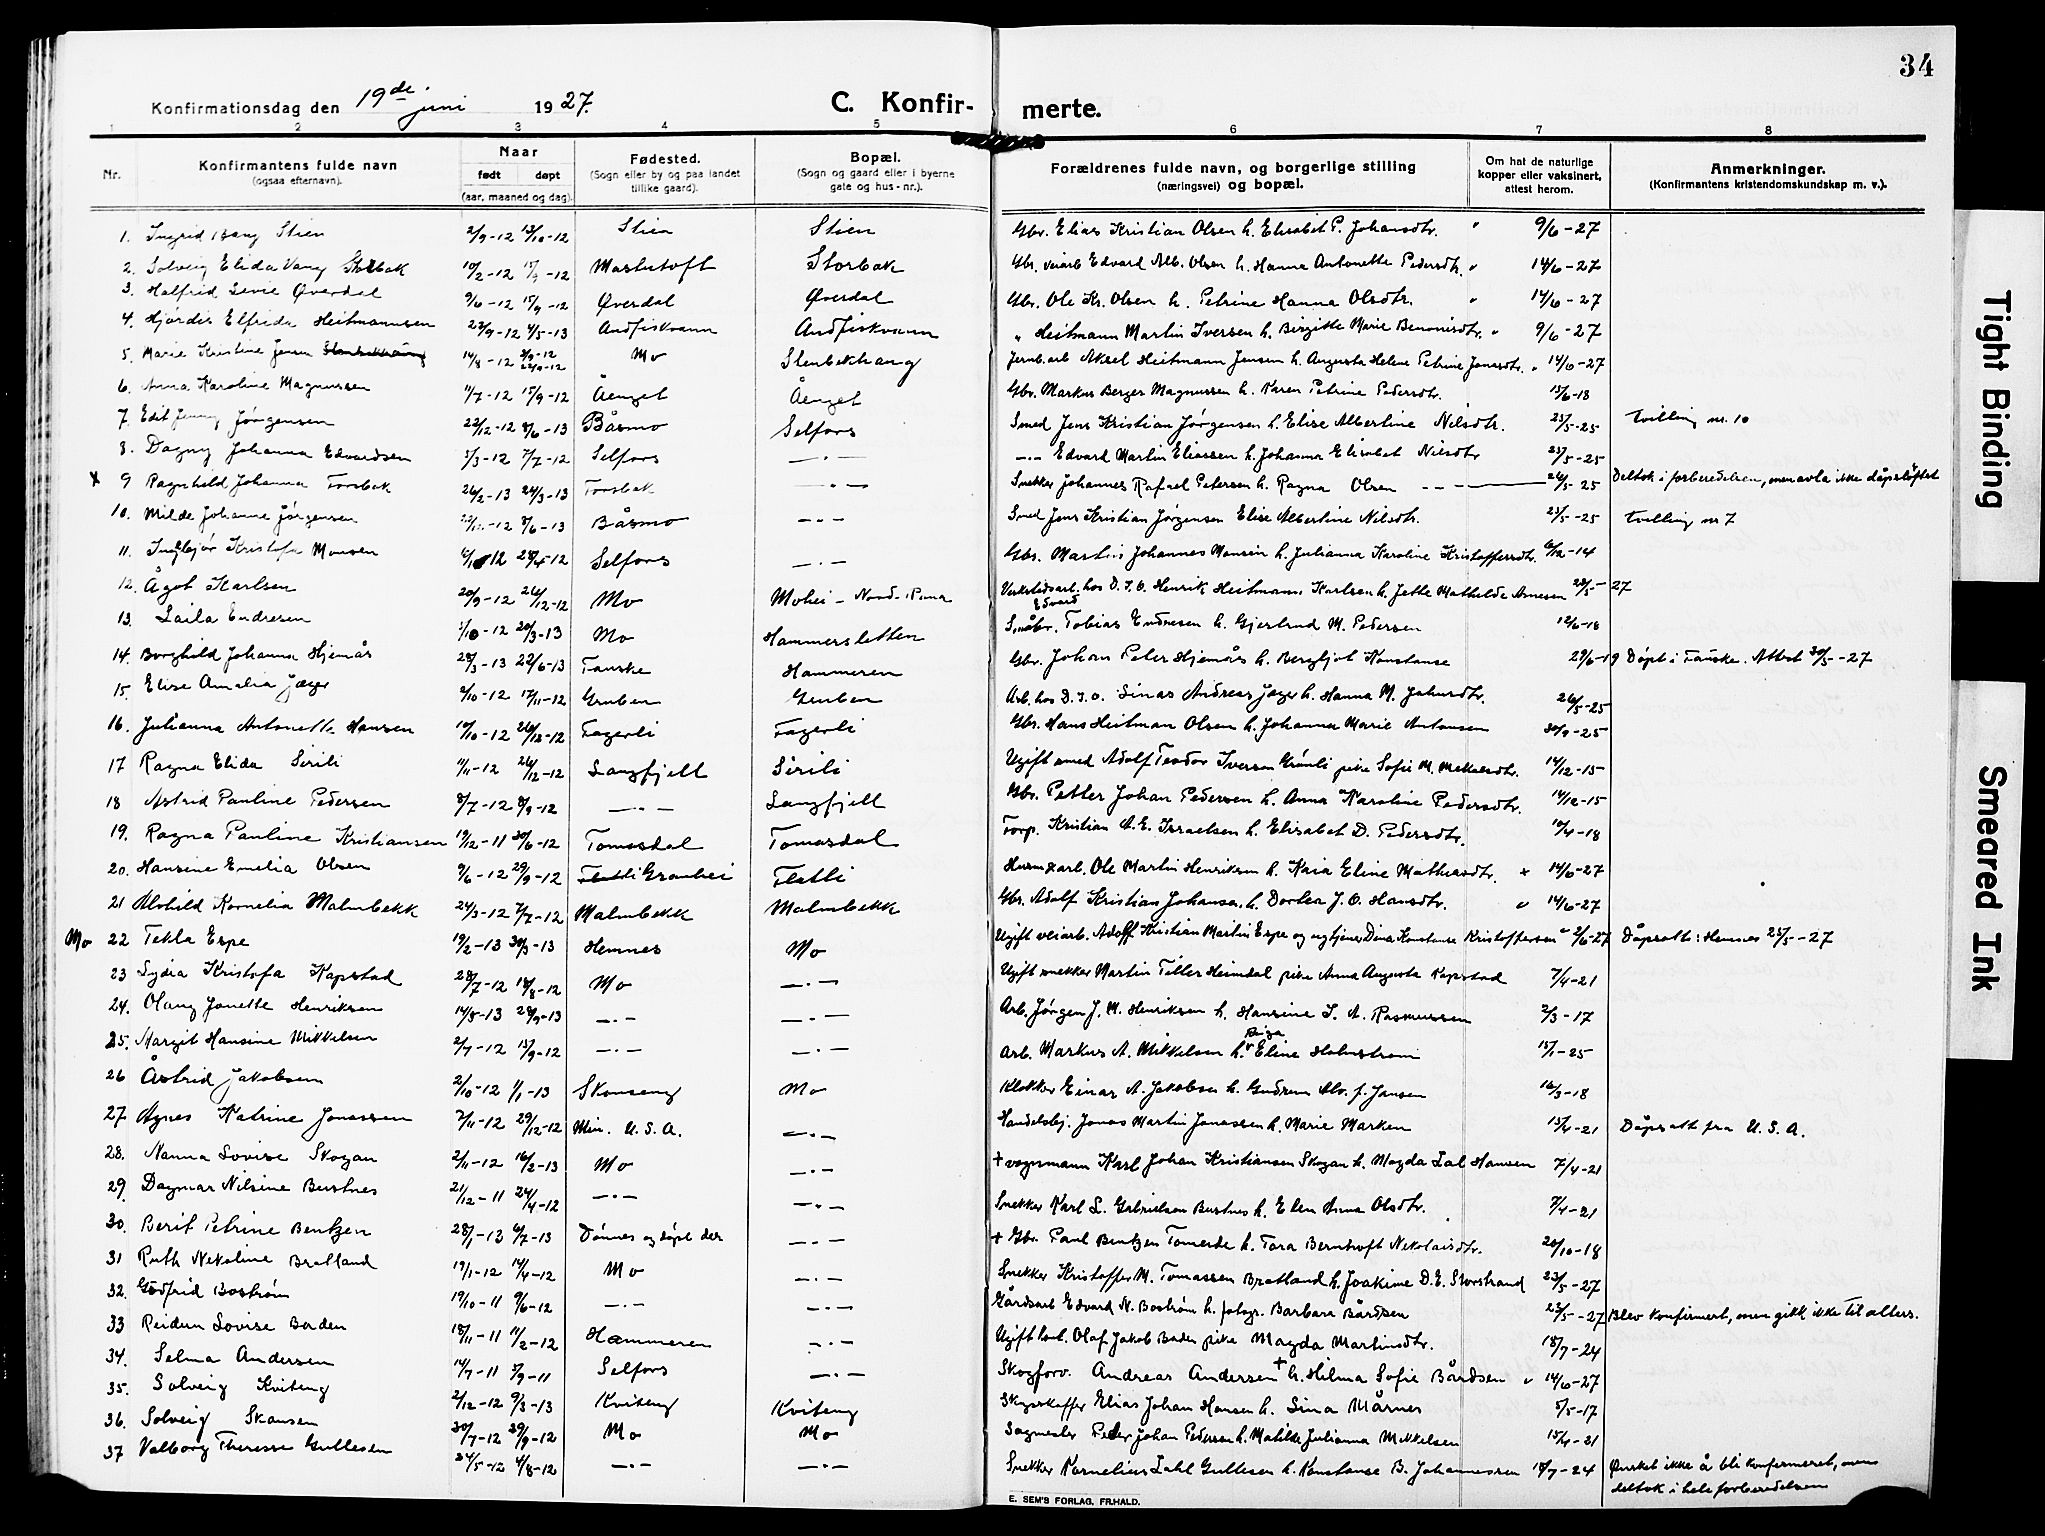 34
Konfirmationsdag den 19de juni 1927.
C. Konfir-merte.
1 2 3 4 5 6 7 8
Nr.
Konfirmantens fulde navn
(ogsaa efternavn).
Naar
født døpt
(aar, maaned og dag).
Fødested.
(Sogn eller by og paa landet
tillike gaard).
Bopæl.
(Sogn og gaard eller i byerne
gate og hus-nr.).
Forældrenes fulde navn, og borgerlige stilling
(næringsvei) og bopæl.
Om hat de naturlige
kopper eller vaksinert,
attest herom.
Anmerkninger.
(Konfirmantens kristendomskundskap m. v.).
1. Ingrid Stien 2/9-12 13/10-12 Stien Stien Gbr. Elias Kristian Olsen h. Elisabet P. Johansdtr. " 9/6-27
2. Solveig Elida Vang Storbak 10/2-12 -12 Storbak Gbr. veiarb Edvard Alb. Olsen h. Hanna Antonette Pedersdtr. " 14/6-27
3. Halfrid Sevie Øverdal 9/6-12 15/9-12 Øverdal Øverdal Gbr. Ole Kr. Olsen h. Petrine Hanna Olsdtr. " 14/6-27
4. Hjørdis Elfrida Heitmannsen 23/9-12 4/5-13 Andfiskvann Andfiskvann " Heitmann Martin Iversen h. Birgitte Marie Benonisdtr. " 9/6-27
5. Marie Kristine Jensen 14/8-12 22/9-12 Mo Stenbekhaug Jernb.arb Aksel Heitmann Jensen h. Augusta Helene Petrine Jonasdtr. " 14/6-27
6. Anna Karoline Magnussen 11/7-12 15/9-12 Åenget Åenget Gbr. Markus Berger Magnussen h. Karen Petrine Pedersdtr. 13/6-18
7. Edit Jenny Jørgensen 22/12-12 8/6-13 Båsmo Selfors Smed Jens Kristian Jørgensen h. Elise Albertine Nilsdtr. 23/5-25 Tvilling nr. 10
8. Dagny Johanna Edvardsen 3/3-12 7/7-12 Selfors -.- -.- Edvard Martin Eliassen h. Johanna Elisabet Nilsdtr 23/5-25
x 9 Ragnhild Johanna Forsbak 26/2-13 24/3-13 Forsbak -.- Snekker Johannes Rafael Petersen h. Ragna Olsen 26/5-25 Deltok i forberedelsen, men avla ikke dåpsløftet
10. Milde Johanne Jørgensen 8/6-13 Båsmo -.- Smed Jens Kristian Jørgensen Elise Albertine Nilsdtr. 23/5-25 Tvilling nr 7
11. Ingebjør Kristofa Monsen 28/4-12 Selfors -.- Gbr. Martin Johannes Monsen h. Julianna Karoline Kristoffersdtr. 6/12-14
12. Ågot Karlsen 20/9-12 26/12-12 Mo Mohei - Nord-Rana Verkstedsarb. hos D.I.O. Henrik Heitmann Karlsen h. Jette Mathilde Arnesen 28/5-27
13. Laila Endresen 1/10-12 20/3-13 Mo Hammersletten Småbr. Edvard Tobias Endresen h. Gjertrud M. Pedersen 12/6-18
14. Borghild Johanna Hjemås 28/3-13 22/6-13 Fauske Hammeren Gbr. Johan Peter Hjemås h. Bergljot Konstanse 29/6-19 Døpt i Fauske. Attest 30/5-27
15 Elise Amalia Jæger 2/10-12 17/11-12 Gruben Gruben Arb. hos D.I.O. Sinas Andreas Jæger h. Hanna M. Johnsdtr. 26/5-25
16. Julianna Antonette Hansen 10/10-12 26/12-12 Fagerli Fagerli Gbr. Hans Heitman Olsen h. Johanna Marie Antonsen 30/9-25
17 Ragna Elida Sirili 11/11-12 26/12-12 Langfjell Sirili Ugift smed Adolf Teodor Iversen Grønli pike Sofie M. Mikkelsdtr. 14/12-15
18 Astrid Pauline Pedersen 8/7-12 8/9-12 -.- Langfjell Gbr. Petter Johan Pedersen h. Anna Karoline Pedersdtr. 14/12-15
19. Ragna Pauline Kristiansen 19/12-11 30/6-12 Tomasdal Tomasdal Forp. Kristian A.E. Israelsen h. Elisabet D. Pedersdtr. 10/4-18
20. Hansine Emelia Olsen 9/6-12 29/9-12 Flatli Granhei Flatli Husm & arb. Ole Martin Henriksen h. Kaia Eline Mathiasdtr. x 14/6-27
21 Alvhild Kornelia Malmbekk 24/3-12 7/7-12 Malmbekk Malmbekk Gbr. Adolf Kristian Johansen h. Dortea J.O. Hansdtr. " 14/6-27
Mo 22 Tekla Espe 19/2-13 30/3-13 Hemnes Mo Ugift veiarb. Adolf Kristian Martin Espe og ug tjener Dina Konstanse Kristoffersen " 2/6-27 Dåpsatt: Hemnes 25/5-27
23 Sydia Kristofa Kapstad 28/7-12 18/8-12 Mo -.- Ugift snekker Martin Teller Heimdal pike Anna Augusta Kapstad 7/4-21
24. Olaug Janette Henriksen 14/8-13 28/9-13 -.- -.- Arb. Jørgen J.M. Henriksen h. Hansine S.A. Rasmussen 2/3-17
25. Margit Hansine Mikkelsen 2/7-12 15/9-12 -.- -.- Arb. Markus A. Mikkelsen h. Eline Holmstrøm 15/1-25
26 Åstrid Jakobsen 2/10-12 1/1-13 Skonseng Mo Klokker Einar A. Jakobsen h. Gudrun Alv. f. Jansen 16/3-18
27 Agnes Katrine Jonassen 7/11-12 29/12-12 Min. U.S.A. -.- Handelsbj. Jonas Martin Jonassen h. Marie Marken 15/4-21 Dåpsatt fra U.S.A.
28. Nanna Lovise Skogan 2/11-12 16/2-13 Mo -.- + vognmann Karl Johan Kristiansen Skogan h. Magda Hansen 7/4-21
29. Dagmar Nilsine Bustnes 21/12-11 24/4-12 -.- -.- Snekker Karl L. Gabrielsen Bustnes h. Elen Anna Olsdtr. 7/4-21
30. Berit Petrine Bentzen 28/1-13 6/7-13 Dønnes og døpt der -.- + Gbr. Paul Bentzen Tomerde h. Tora Bernhoft Nekolaisdtr. 20/10-18
31 Ruth Nekoline Bratland 19/1-12 14/4-12 Mo -.- Snekker Kristoffer M. Tomassen Bratland h. Joakime D.E. Storstrand 23/5-27
32. Godfrid Bostrøm 19/10-11 9/6-12 -.- -.- Gårdsarb Edvard N. Bostrøm h. Barbara Bårdsen 23/5-27 Blev konfirmert, men gikk ikke til alters.
33 Reidun Lovise Boden 18/11-11 11/2-12 Hammeren -.- Ugift Olaf Jakob Boden pike Magda Martinsdtr. 18/7-24
34. Selma Andersen 14/7-11 3/9-11 Selfors -.- Skogforv. Andreas Andersen + h. Hilma Sofie Bårdsen " 14/6-27
35. Solveig Kviteng 2/12-12 9/3-13 Kviteng Kviteng Skyss-skaffer Elias Johan Hansen h. Sina Mårnes 5/5-17
36. Solveig Skansen 30/7-12 29/9-12 Mo Mo Sagmester Peder Johan Pedersen h. Matilde Julianna Mikkelsen 15/4-21
37 Valborg Theresse Gullesen 24/5-12 4/8-12 -.- -.- Snekker Kornelius Dahl Gullesen h. Konstanse B. Johannessen 18/7-24 Ønsket ikke å bli konfirmeret, men
deltok i hele forberedelsen
E. SEM'S FORLAG, FR.HALD.
Tight Binding
Smeared Ink